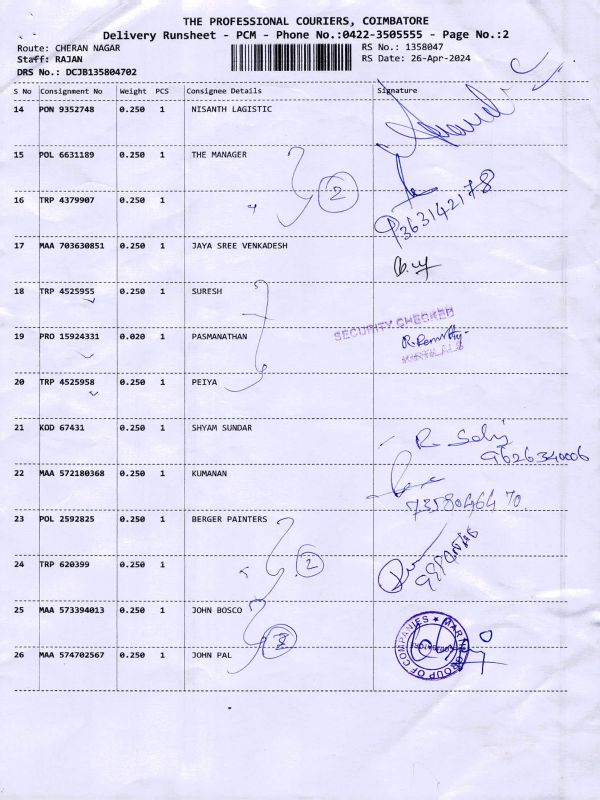 THE PROFESSIONAL COURIERS, COIMBATORE
Delivery Runsheet - PCM - Phone No.:0422-3505555 - Page No.:2
Route: CHERAN NAGAR RS No.: 1358047
Staff: RAJAN RS Date: 26-Apr-2024
DRS No.: DCJB135804702
S No Consignment No Weight PCS Consignee Details Signature
14 PON 9352748 0.250 1 NISANTH LAGISTIC
15 POL 6631189 0.250 1 THE MANAGER
2
16 TRP 4379907 0.250 1
9363142178
17 MAA 703630851 0.250 1 JAYA SREE VENKADESH
18 TRP 4525955 0.250 1 SURESH
SECURITY CHECKED
19 PRO 15924331 0.020 1 PASMANATHAN
20 TRP 4525958 0.250 1 PEIYA
21 KOD 67431 0.250 1 SHYAM SUNDAR
9626340006
22 MAA 572180368 0.250 1 KUMANAN
7358046470
23 POL 2592825 0.250 1 BERGER PAINTERS
24 TRP 620399 0.250 1 2
25 MAA 573394013 0.250 1 JOHN BOSCO
MARTIN GROUP OF COMPANIES
26 MAA 574702567 0.250 1 JOHN PAL